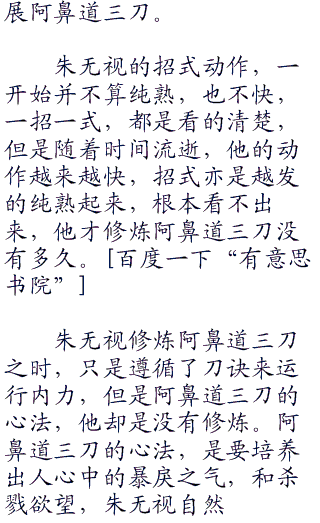 展阿鼻道三刀。
朱无视的招式动作，一
开始并不算纯熟，也不快，
一招一式，都是看的清楚，
但是随着时间流逝，他的动
作越来越快，招式亦是越发
的纯熟起来，根本看不出
来，他才修炼阿鼻道三刀没
有多久。[百度一下“有意思
书院”]
朱无视修炼阿鼻道三刀
之时，只是遵循了刀诀来运
行内力，但是阿鼻道三刀的
心法，他却是没有修炼。阿
鼻道三刀的心法，是要培养
出人心中的暴戾之气，和杀
戮欲望，朱无视自然